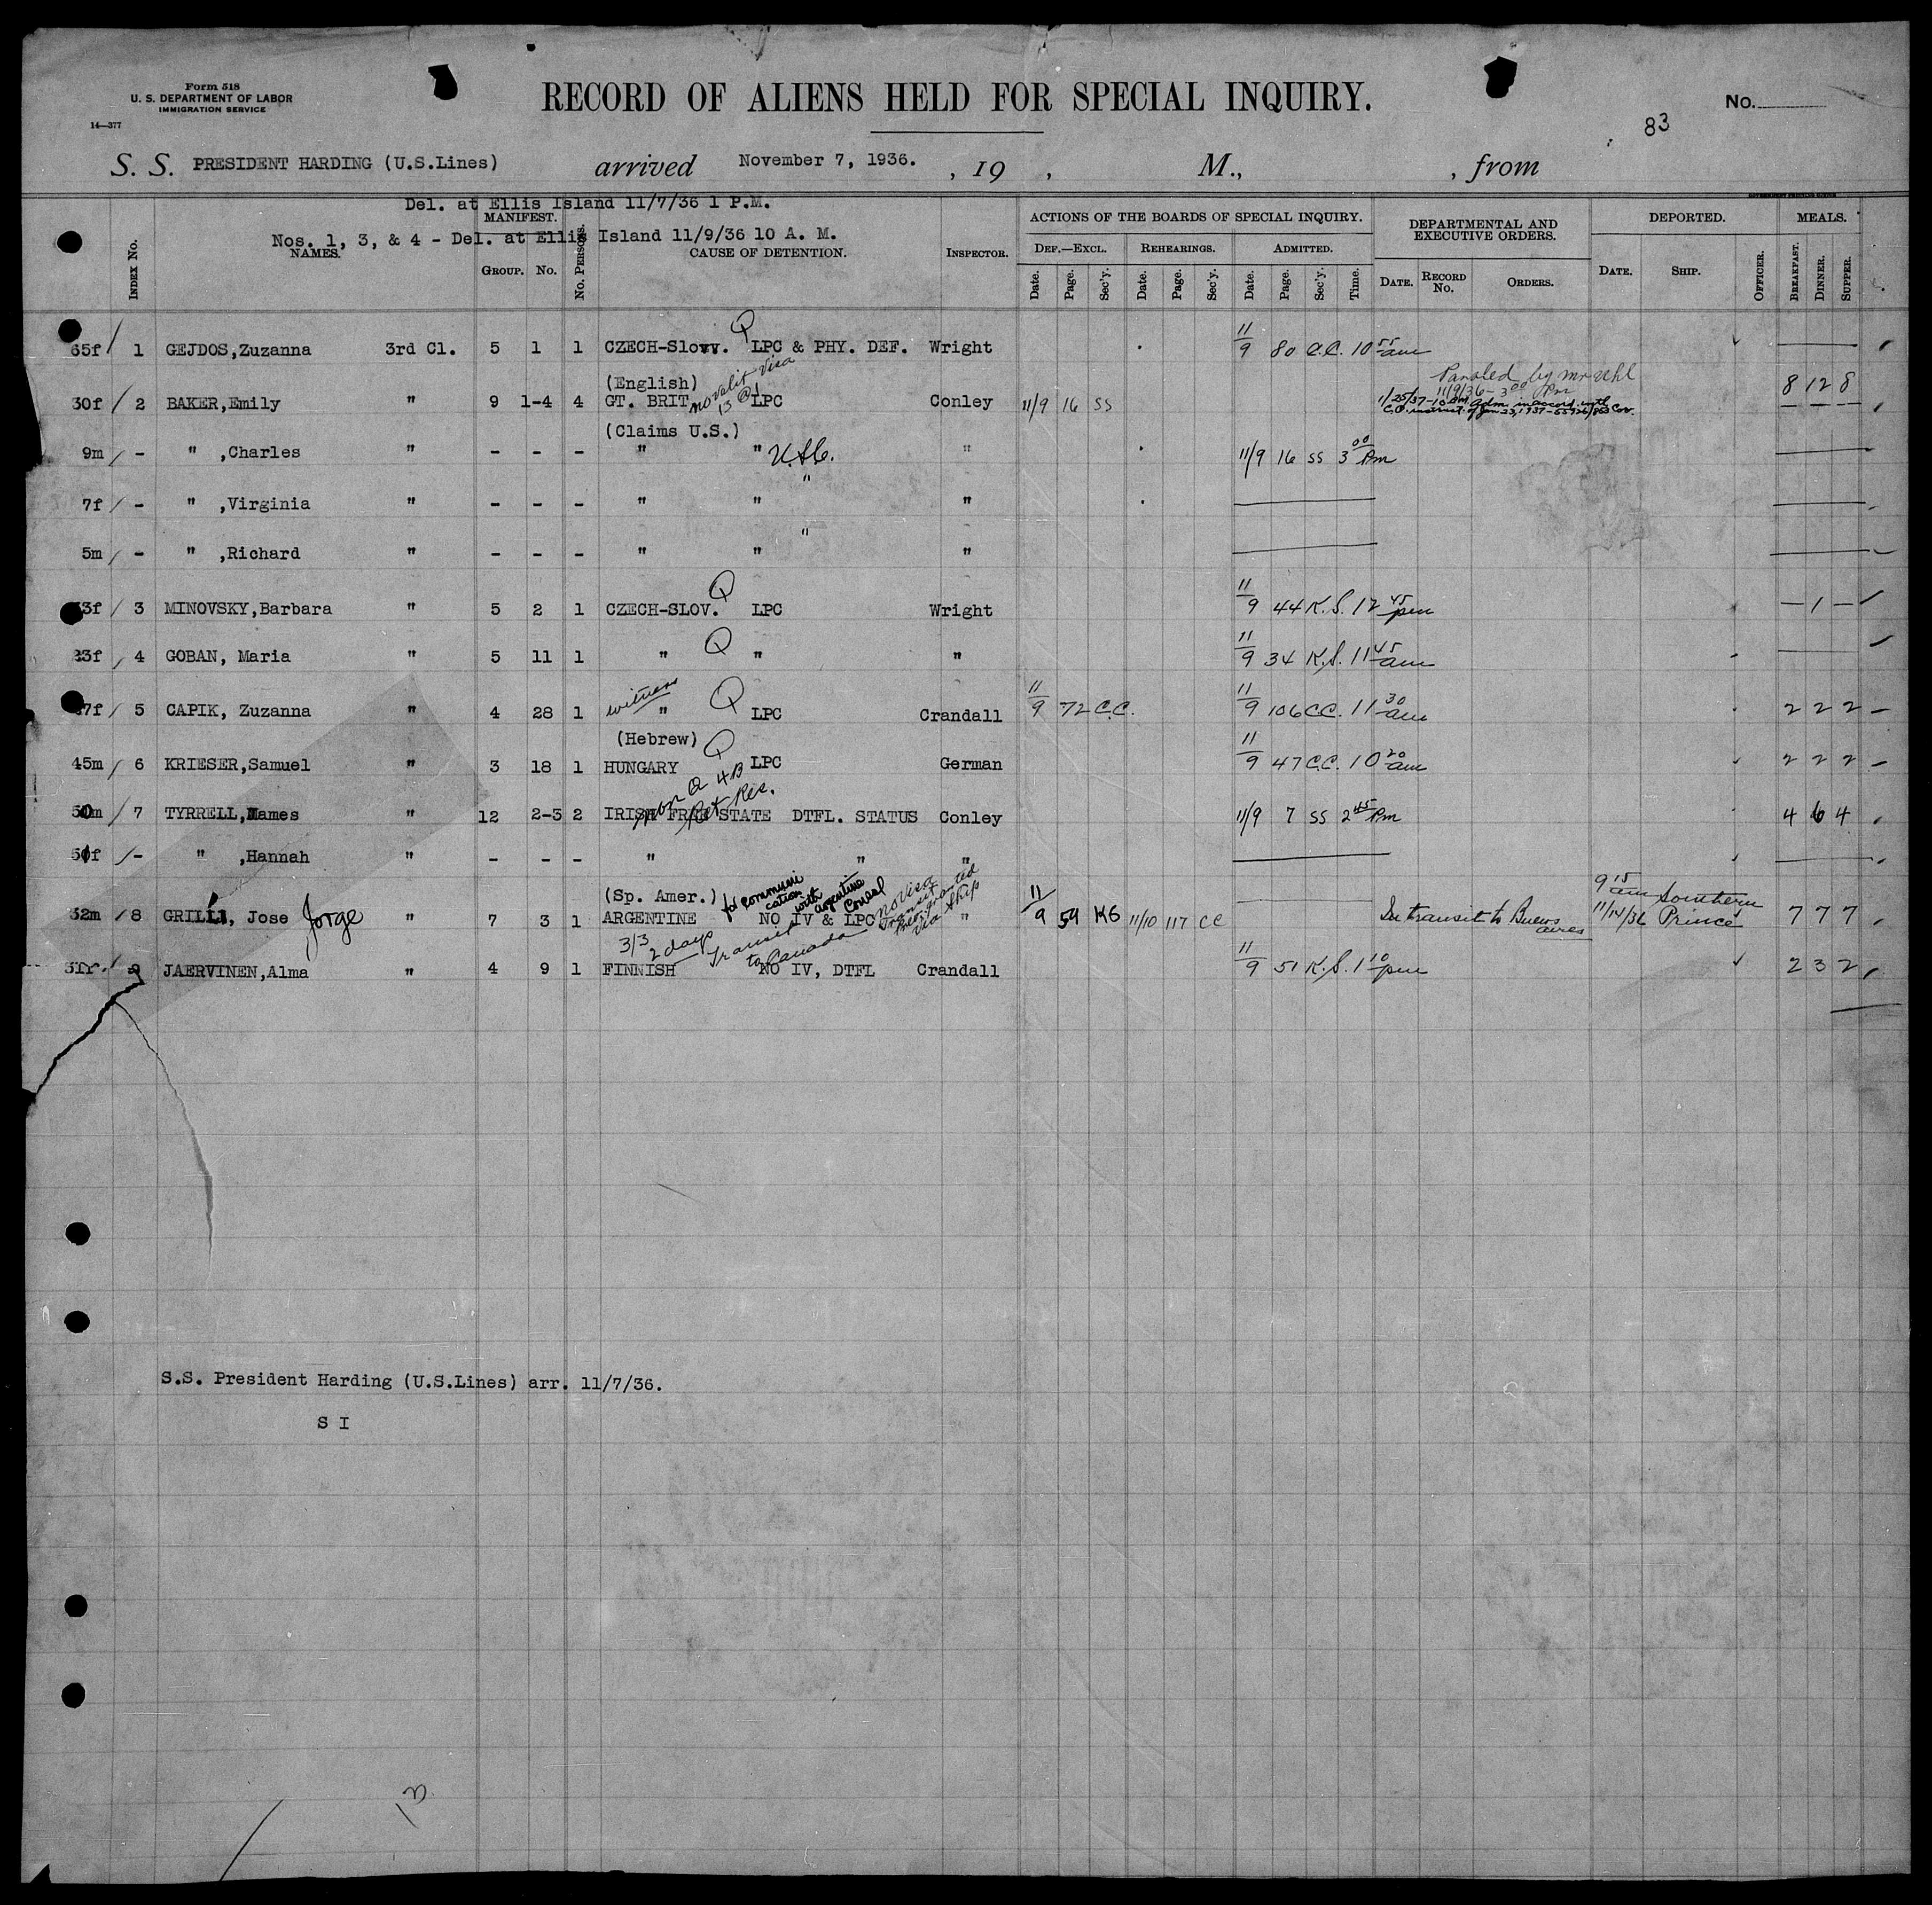 Form 518
U. S. DEPARTMENT OF LABOR
IMMIGRATION SERVICE
14—377
RECORD OF ALIENS HELD FOR SPECIAL INQUIRY.
No.
83
S. S. PRESIDENT HARDING (U.S.Lines) arrived November 7, 1936. , 19 , M., , from
Del. at Ellis Island 11/7/36 1 P.M.
Nos. 1, 3, & 4 - Del. at Ellis Island 11/9/36 10 A. M.
INDEX No. NAMES. MANIFEST. GROUP. No. No. PERSONS. CAUSE OF DETENTION. INSPECTOR. ACTIONS OF THE BOARDS OF SPECIAL INQUIRY. DEPARTMENTAL AND EXECUTIVE ORDERS. DEPORTED. MEALS.
DEF.—EXCL. REHEARINGS. ADMITTED.
Date. Page. Sec'y. Date. Page. Sec'y. Date. Page. Sec'y. Time. DATE. RECORD No. ORDERS. DATE. SHIP. OFFICER. BREAKFAST. DINNER. SUPPER.
65f / 1 GEJDOS,Zuzanna 3rd Cl. 5 1 1 CZECH-Slovv. Q LPC & PHY. DEF. Wright 11/9 80 C.C. 10 55 am
(English) no valid visa 13 @1 Paroled by Mr Uhl
11/9/36 - 3 00 Pm
30f / 2 BAKER,Emily " 9 1-4 4 GT. BRIT. LPC Conley 11/9 16 SS 8 12 8
1/25/37-10 am Adm. in accord. with
C.O. instruct. of Jan 23, 1937-
(Claims U.S.)
9m / - " ,Charles " - - - " " U.S.C. " 11/9 16 SS 3 00 Pm
7f / - " ,Virginia " - - - " " " "
5m / - " ,Richard " - - - " " " "
3f / 3 MINOVSKY,Barbara " 5 2 1 CZECH-SLOV. Q LPC Wright 11/9 44 K.S. 12 45 pm — 1 —
23f / 4 GOBAN, Maria " 5 11 1 " Q " " 11/9 34 K.S. 11 45 am
7f / 5 CAPIK, Zuzanna " 4 28 1 witness " Q LPC Crandall 11/9 72 C.C. 11/9 106 CC. 11 30 am 2 2 2
(Hebrew)
45m / 6 KRIESER,Samuel " 3 18 1 HUNGARY Q LPC German 11/9 47 C.C. 10 20 am 2 2 2
non Q 4B
Ret Res.
50m / 7 TYRRELL,James " 12 2-3 2 IRISH FREE STATE DTFL. STATUS Conley 11/9 7 SS 2 45 Pm 4 6 4
50f / - " ,Hannah " - - - " " "
(Sp. Amer.) for communication with Argentine Consul no visa Transit
32m / 8 GRILLI, Jose Jorge " 7 3 1 ARGENTINE NO IV & LPC " 11/9 59 KG 11/10 117 CC In transit to Buenos Aires 9 15 am 11/14/36 Southern Prince 7 7 7
3/3 2 days Transit to Canada
31f / 9 JAERVINEN,Alma " 4 9 1 FINNISH NO IV, DTFL Crandall 11/9 51 K.S. 1 10 pm 2 3 2
S.S. President Harding (U.S.Lines) arr. 11/7/36.
S I